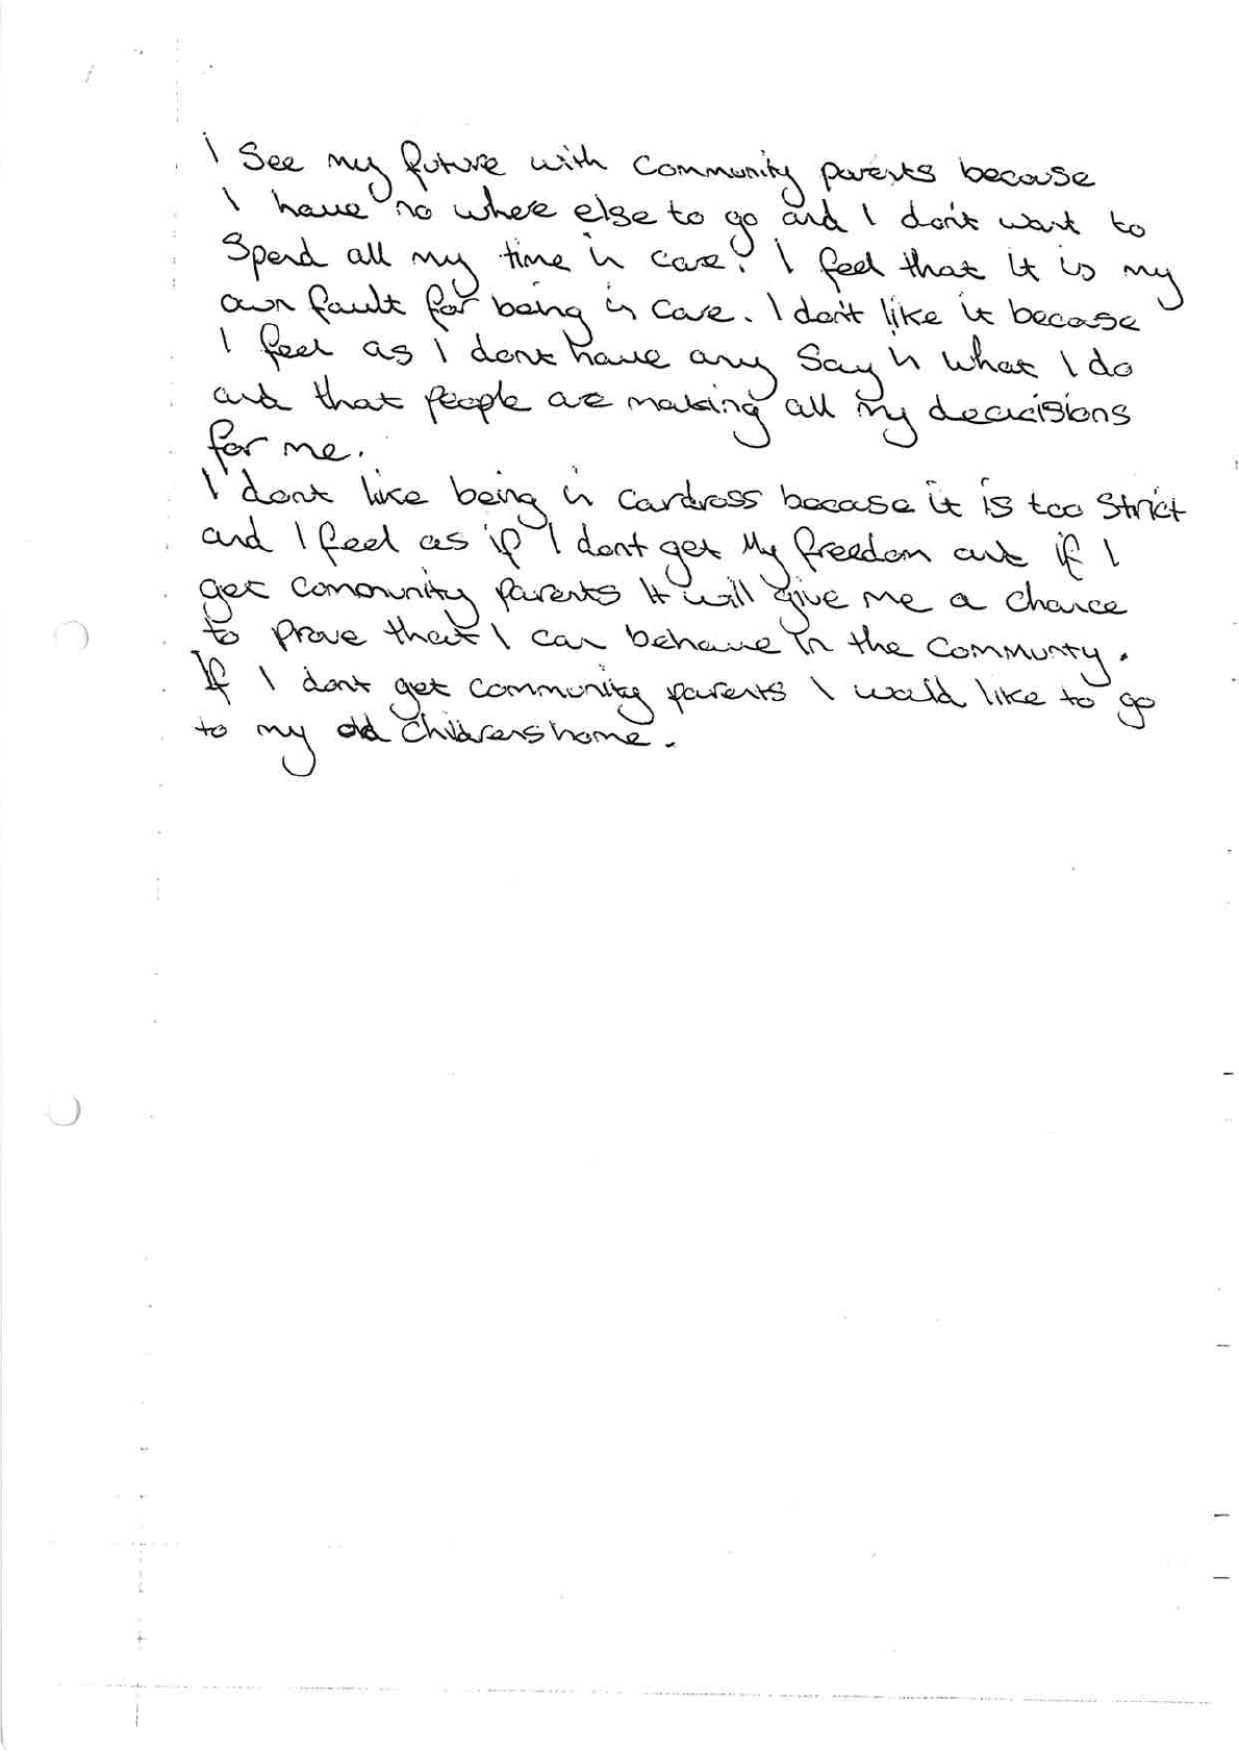 I See my future with community parents because
I have no where else to go and I don't want to
Spend all my time in care. I feel that it is my
own fault for being in care. I don't like it becase
I feel as I dont have any Say in what I do
and that people are making all my decicisions
for me.
I dont like being in Cardross becase it is too Strict
and I feel as if I dont get My freedom and if I
get community parents It will give me a chance
to prove that I can behave in the Communty.
If I dont get community parents I would like to go
to my old childrens home.